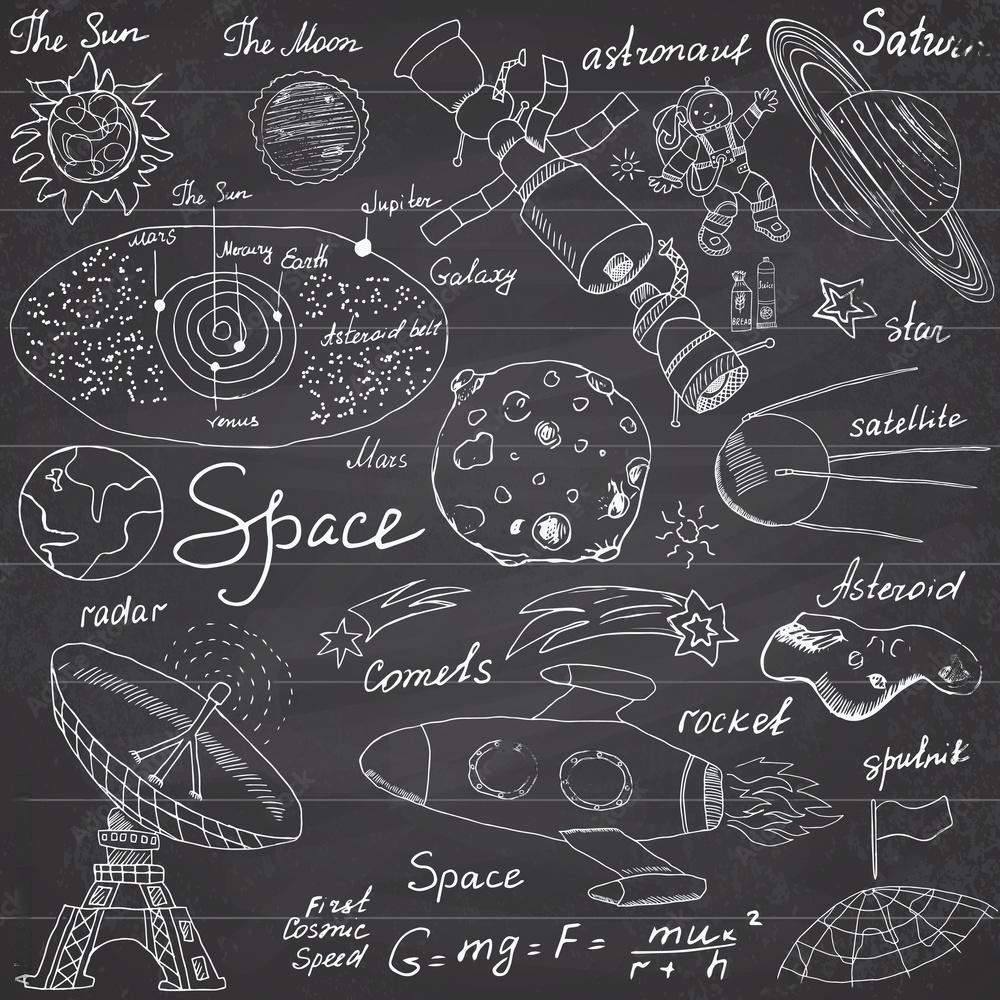 The Sun
The Moon
astronaut
Saturn
The Sun
Jupiter
Mars
Mercury
Earth
Galaxy
Asteroid belt
venus
BREAD
Juice
star
satellite
Mars
Space
Asteroid
radar
Comets
rocket
sputnik
Space
First
Cosmic
Speed
G = mg = F = muк² / r + h